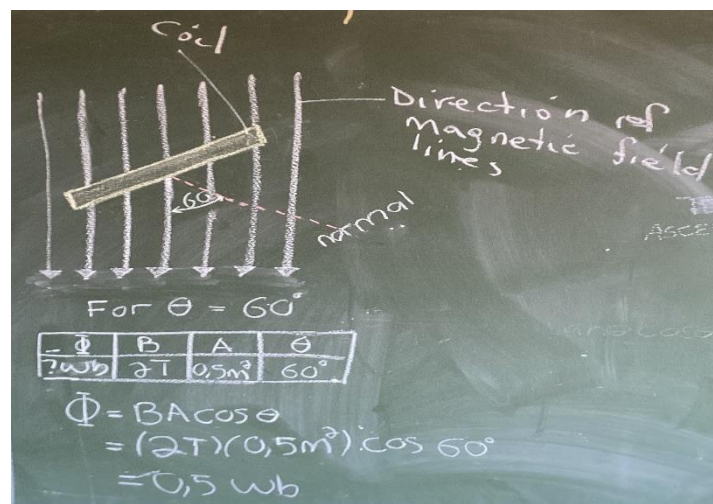 Coil
Direction of
magnetic field
lines
60
normal
For θ = 60°
Φ B A θ
? Wb 2T 0,5m² 60°
Φ = BA cos θ
= (2T)(0,5m²).cos 60°
= 0,5 Wb
ASCE